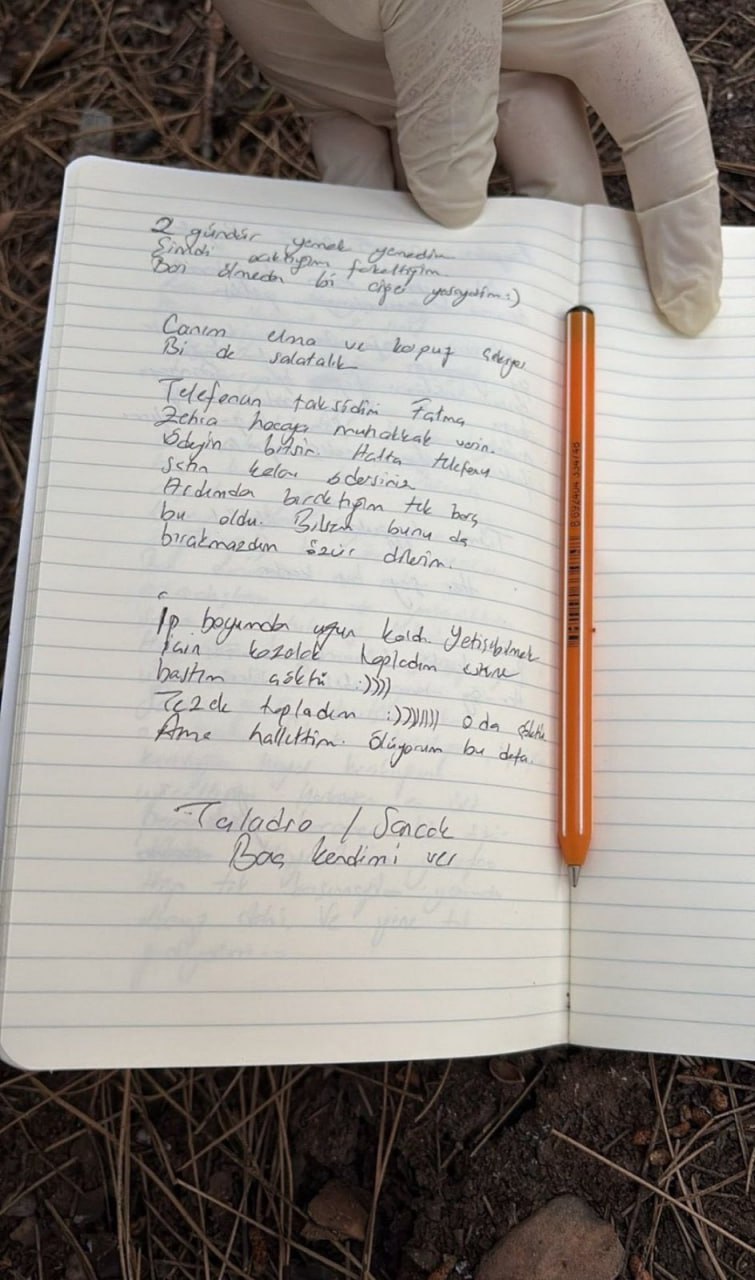 2 gündür yemek yemedim
Şimdi acıktığım
Ben ölmeden bi yaşıyodım:)
Canım elma ve karpuz çekiyor
Bi de salatalık
Telefonun taksidini Fatma
Zehra hocaya muhakkak verin.
Ödeyin bitsin. Hatta telefonu
satın kalan ödersiniz
Ardımda bıraktığım tek borç
bu oldu. Bilsem bunu da
bırakmazdım özür dilerim.
İp boyumdan uzun kaldı. Yetişebilmek
için kozalak topladım üstüne
bastım çöktü :))))
Tezek topladım :))))))) o da çöktü
Ama hallettim. Ölüyorum bu defa.
Taladro / Sancak
Baş kendimi ver
8 692404 334748